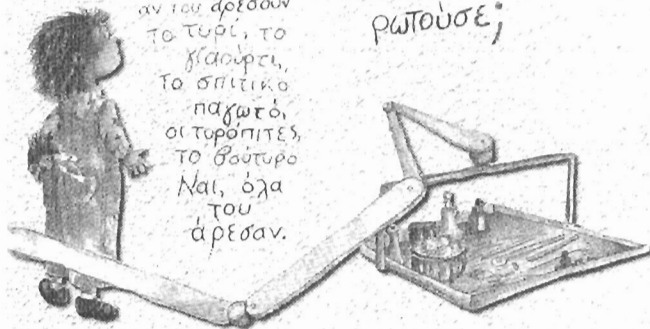 αν του αρέσουν
το τυρί, το
γιαούρτι,
το σπιτικό
παγωτό,
οι τυρόπιτες,
το βούτυρο
Ναι, όλα
του
άρεσαν.
ρωτούσε;